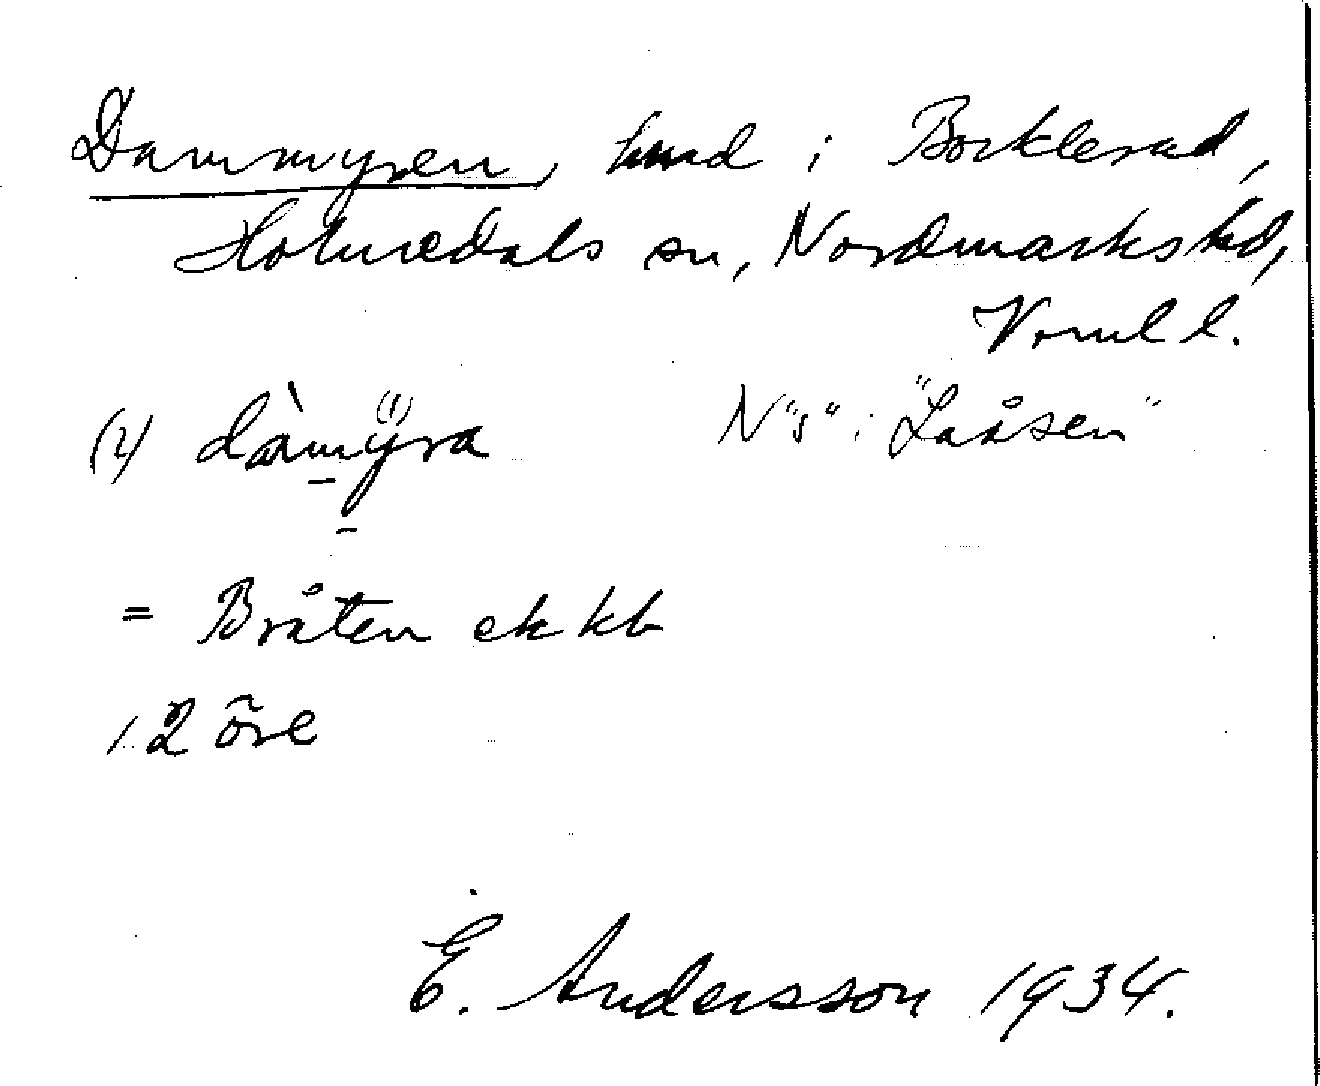 Dammyren, hmd i Bocklerud,
Holmedals sn, Nordmarks hd,
Verml l.
(2) dàmyra N"s" i "Laåsen"
= Bråten ek kb
12 öre
E. Andersson 1934.